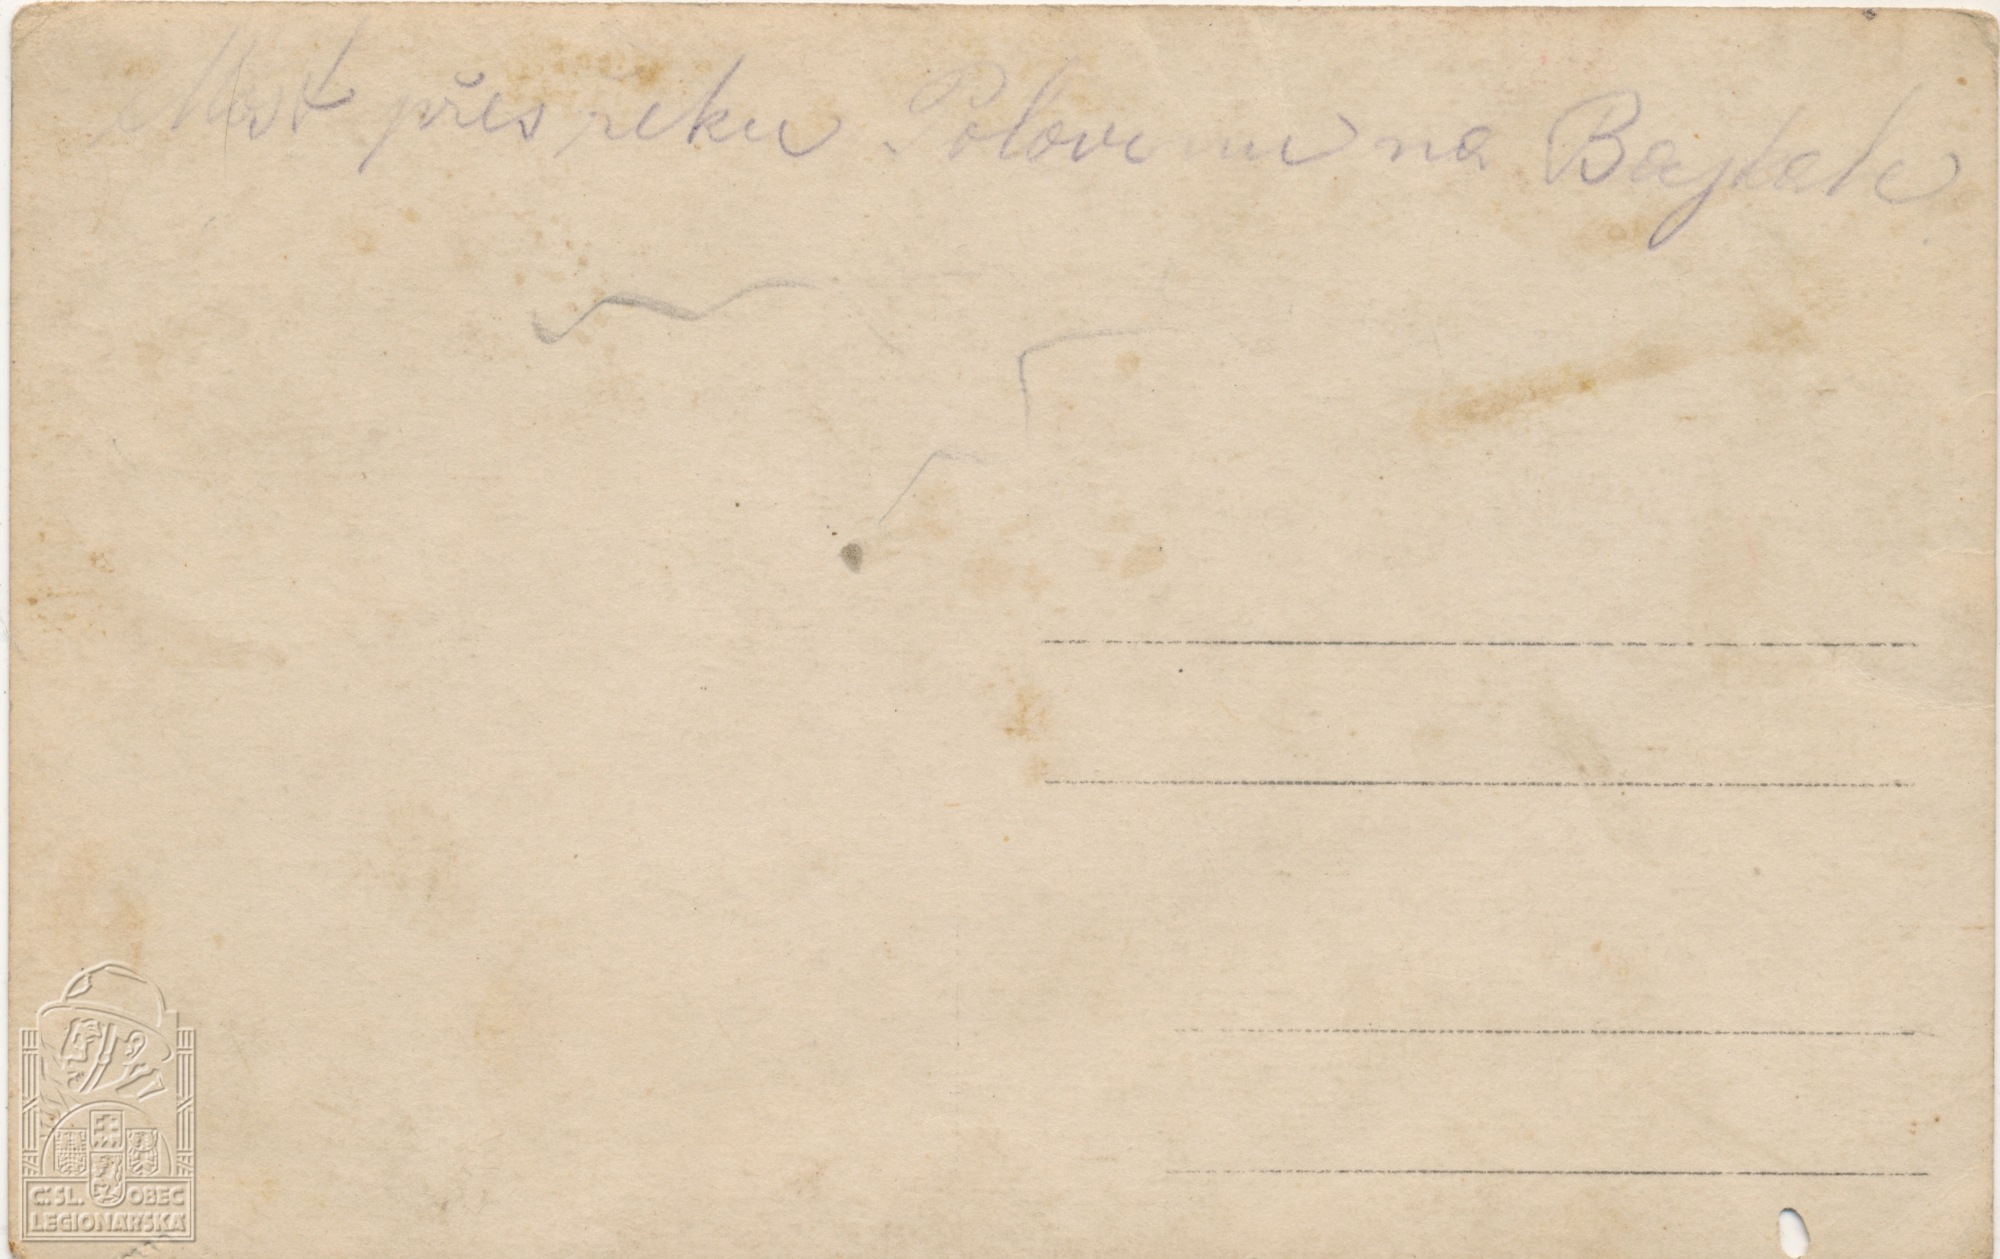 Most přes řeku Polovinu na Bajkale
Č.SL. OBEC
LEGIONÁŘSKÁ